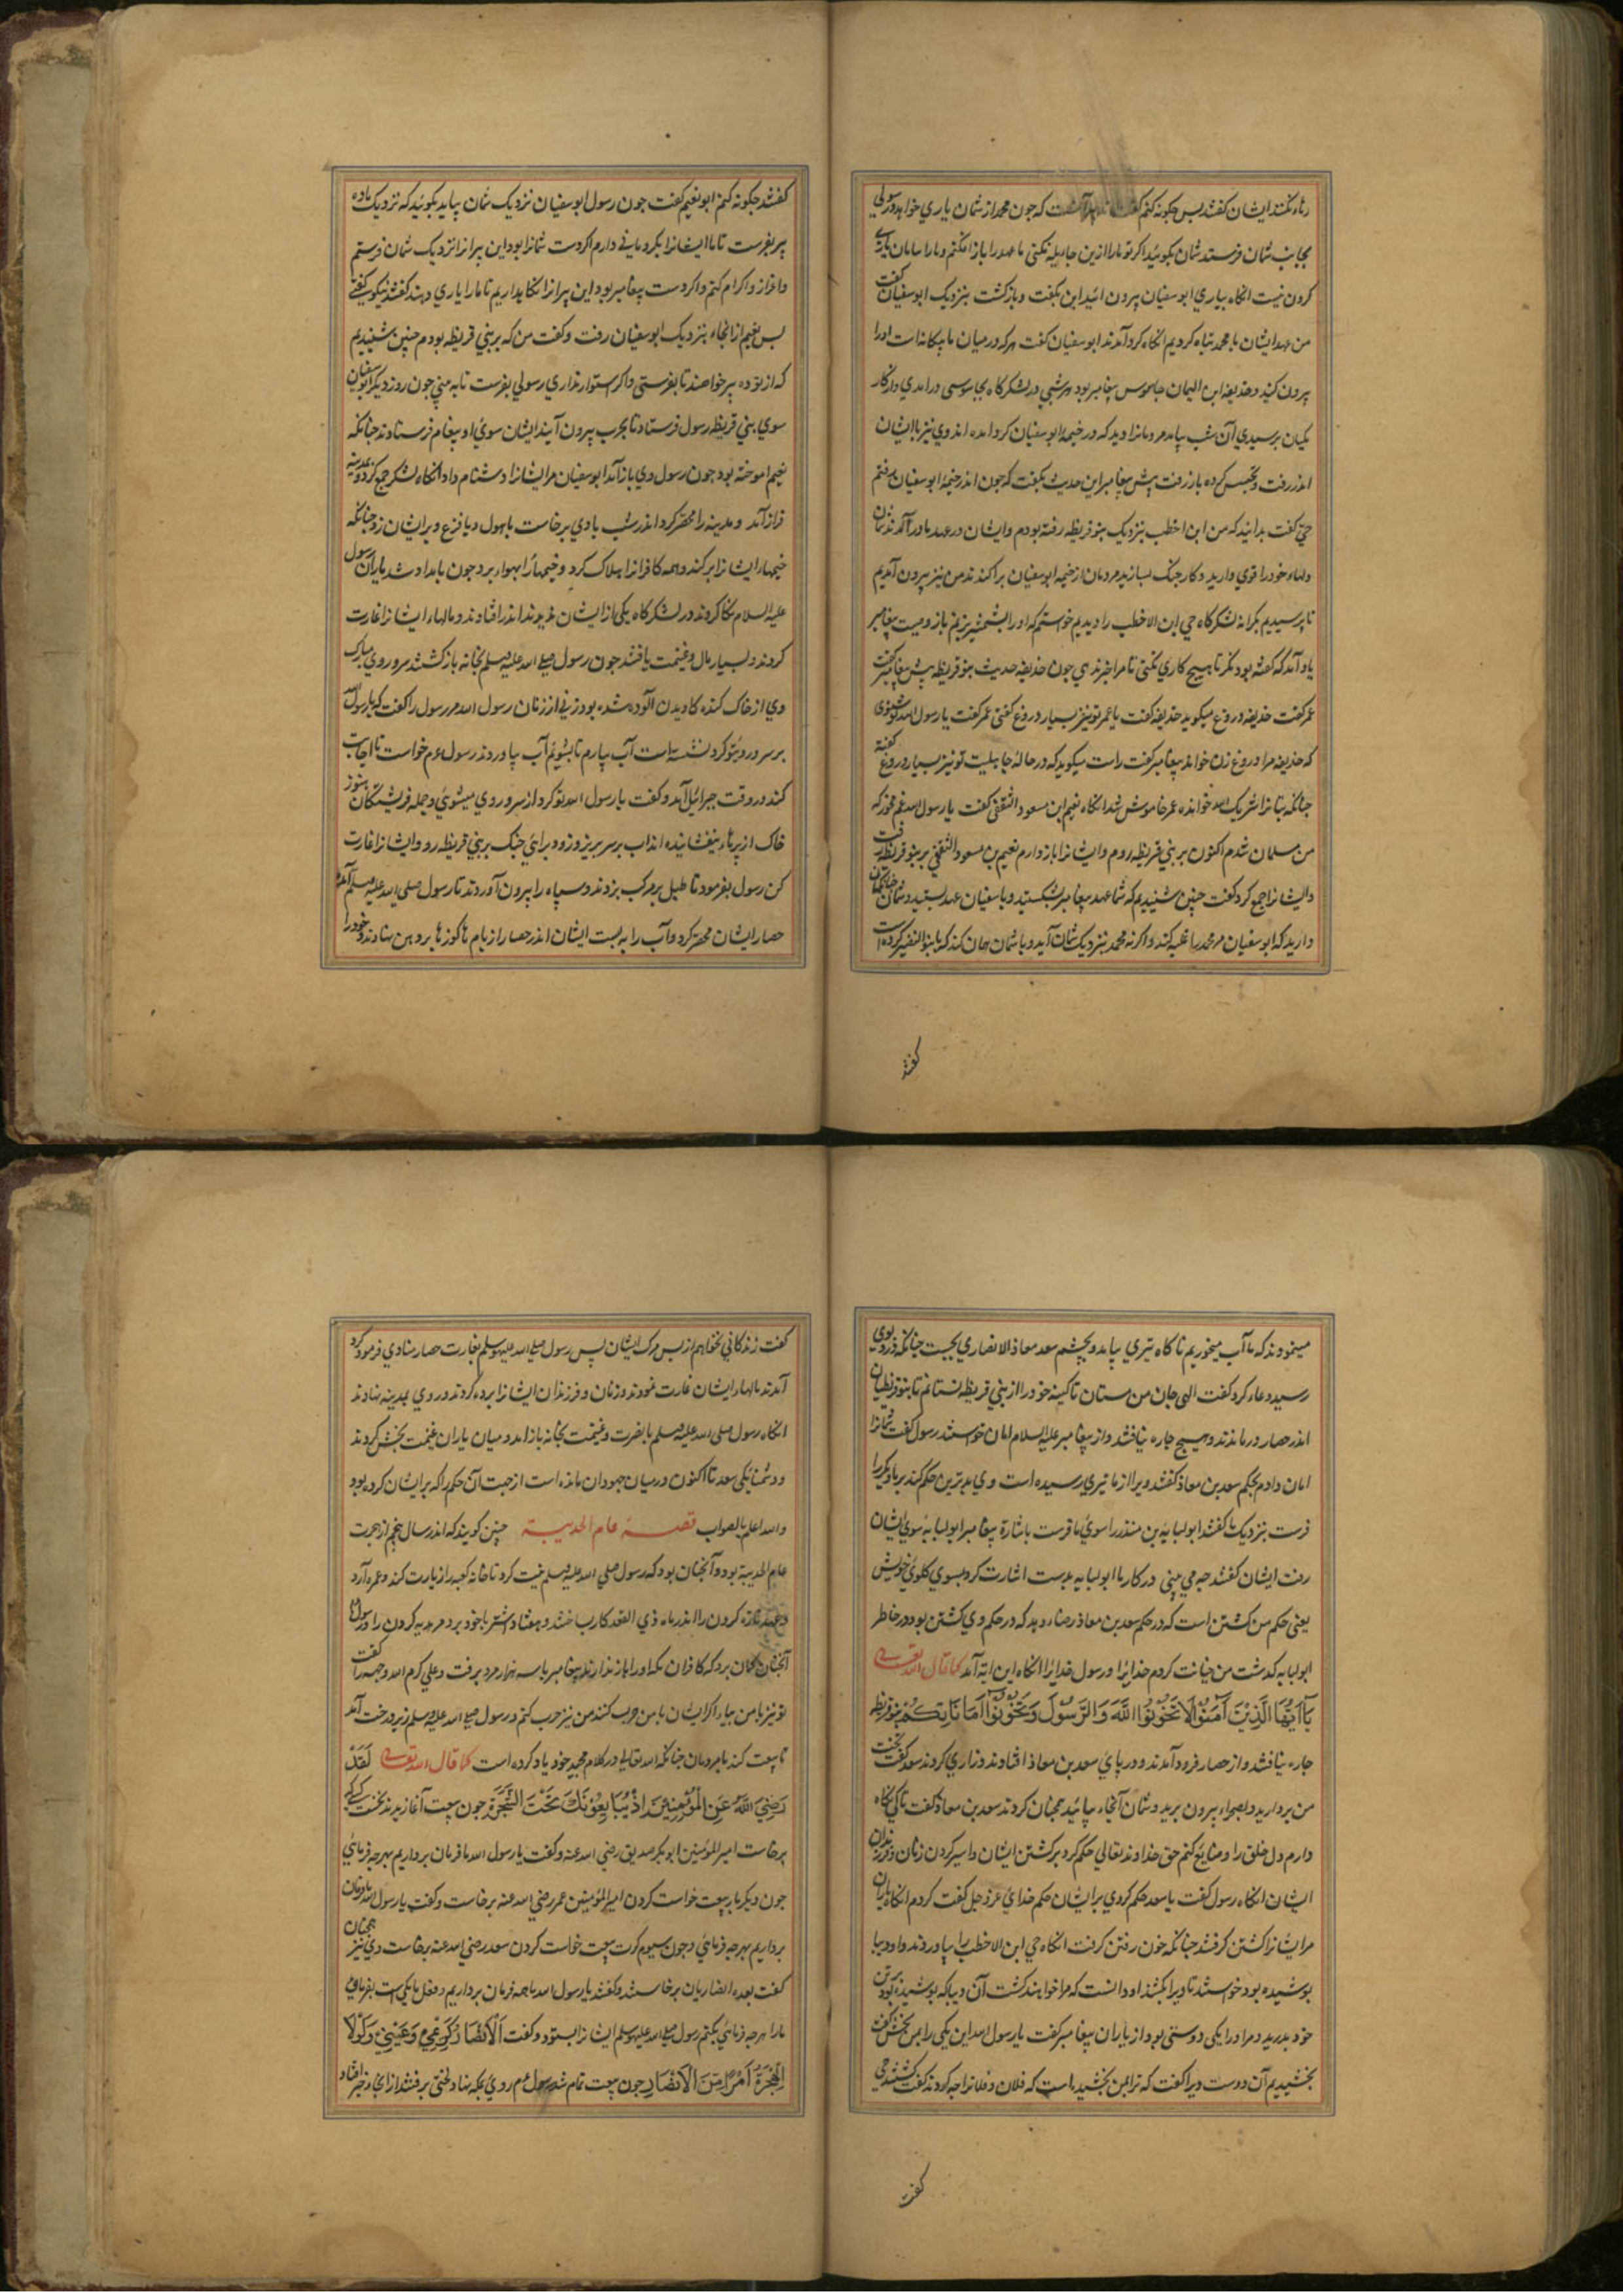 رها نکنند ایشان گفتند پس چکونه کنم گفت که جون محمد از شمان یاری خواهد و رسولی
بجانب شمان فرستد شمان بکوئید اکر تو مارا ازین جا یله نکنی ما عهد را باز افکنیم و مارا سامان یاری
کردن نیست انکاه بیاری ابو سفیان بیرون ائید این بکفت و باز کشت بنزدیک ابوسفیان گفت
من عهد ایشان با محمد تباه کردیم انکاه کرد آمدند ابو سفیان گفت هر که در میان ما بیکانه است اورا
بیرون کنید و حذیفه ابن الیمان جاسوس پیغامبر بود هر شبی در لشکرکاه بجاسوسی درامدی و از کار
یکیان برسیدی آن شب بیامد مردمانرا دید که در خیمه ابو سفیان کرد امده اند وی نیز با ایشان
اندر رفت و تجسس کرده باز رفت پیش پیغامبر این حدیث بکفت که جون اندر خیمه ابو سفیان برفتم
حیی گفت بدانید که من ابن اخطب بنزدیک بنو قریظه رفته بودم وایشان در عهد ما در آمدند شمان
دلهاء خود را قوی دارید و کار جنک بسازید مردمان از خیمه ابو سفیان براکندند من نیز بیرون آمدیم
تا برسیدیم بکرانه لشکرکاه حیی ابن الاخطب را دیدیم خواستم که اورا بشمشیر بزنم باز وصیت پیغامبر
یاد آمد که گفته بود نکر تا هیچ کاری نکنی تا مرا خبر ندهی جون حذیفه حدیث بنو قریظه پیش پیغامبر گفت
عمر گفت حذیفه دروغ میکوید حذیفه گفت یا عمر تو نیز بسیار دروغ گفتی عمر گفت یارسول الله تو شنوی
که حذیفه مرا دروغ زن خواند پیغامبر گفت راست میکوید که در حالۀ جاهلیت تو نیز بسیار دروغ گفتۀ
جنانکه بتانرا شریک الله خوانده عمر خاموش شد انکاه نعیم ابن مسعود الثقفی گفت یارسول الله غم مخور که
من مسلمان شدم اکنون بر بنی قریظه روم وایشانرا باز دارم نعیم بن مسعود الثقفی بر بنو قریظه رفت
وایشانرا جمع کرد گفت جنین شنیدیم که شما عهد پیغامبر بشکستید و با سفیان عهد بستید و شمان
دارید که ابو سفیان مر محمد را غلبه کند و اکرنه محمد بنزدیک شمان آید و با شمان همان کند که با بنو النضیر کرده است
گفتند
گفتند جکونه کنم ابو نعیم گفت جون رسول ابو سفیان نزدیک شمان بیاید بکوئید که نزدیک ماده
پسر بفرست تا ما ایشانرا بکروکانی دارم اکر دست شمانرا بود این پسرانرا نزدیک شمان فرستم
واعزاز و اکرام کنم و اکر دست پیغامبر بود این پسرانرا نکاهداریم تا مارا یاری دهند گفتند نیکو میکفتی
پس نعیم از انجاء بنزدیک ابو سفیان رفت و گفت من که بر بنی قریظه بودم جنین شنیدیم
که از تو ده پسر خواهند تا بفرستی و اکر استوار نداری رسولی بفرست تا به بینی جون روز دیکر ابو سفیان
سوی بنی قریظه رسول فرستاد تا بحرب بیرون آیند ایشان سوئ او پیغام فرستادند جنانکه
نعیم اموخته بود جون رسول وی باز آمد ابو سفیان مر ایشانرا دشنام داد انکاه لشکر جمع کرد و مدینه
فراز آمد و مدینه را محصر کرد اندر شب بادی برخاست با هول و با فزع و بر ایشان زد جنانکه
خیمهاء ایشانرا بر کند و همه کافرانرا هلاک کرد و خیمها را بهواء برد جون بامداد شد یاران رسول
علیه السلام نکاه کردند در لشکرکاه یکی از ایشان ندیدند اندر افتادند و مالهاء ایشانرا غارت
کردند و بسیار مال و غنیمت یافتند جون رسول صلی الله علیه وسلم بخانه باز کشتند سر و روی مبارک
وی از خاک کنده کاویدن آلوده شده بود زنی از زنان رسول الله مر رسول را گفت که یارسول الله
بر سر و روی تو کرد نشسته است آب بیارم تا بشویم آب بیاوردند رسول ءم خواست تا اجابت
کند در وقت جبرائیل آمد و گفت یا رسول الله تو کرد از سر و روی میشوئی و جمله فریشتکان هنوز
خاک از پرهاء نیفشانیده اند آب بر سر بریز و زود برائ جنک بر بنی قریظه رو وایشانرا غارت
کن رسول بفرمود تا طبل بر مرکب بزدند و سپاه را بیرون آوردند تا رسول صلی الله علیه وسلم آمد
حصار ایشان محصر کرد و آب را به بست ایشان اندر حصار از بام ها کوزها بر دهن نهادند و خود را
مینمودند که ما آب میخوریم ناکاه تیری بیامد و بجشم سعد معاذ الانصاری بجست جنانکه درد بوی
رسید دعاء کرد گفت الهی جان من مستان تا کینه خود را از بنی قریظه نستانم تا بنو قریظیان
اندر حصار در ماندند و هیچ جاره نیافتند و از پیغامبر علیه السلام امان خواستند رسول گفت شمانرا
امان دادم بحکم سعد بن معاذ گفتند ویرا از ما تیری رسیده است وی بدترین حکم کند بر ما دیکریرا
فرست بنزدیک ما گفتند ابو لبابه بن منذر را سوئ ما فرست باشارة پیغامبر ابو لبابه سوئ ایشان
رفت ایشان گفتند جه می بینی در کار ما ابو لبابه بدست اشارت کرد بسوی کلوئ خویش
یعنی حکم من کشتن است که در حکم سعد بن معاذ رضاء دهد که در حکم وی کشتن بود در خاطر
ابو لبابه کذشت من خیانت کردم خدایرا و رسول خدایرا انکاه این ایه آمد کما قال الله تعالی
یَا اَیُّهَا الَّذِیْنَ آمَنُوْا لَا تَخُوْنُوْا اللّٰهَ وَالرَّسُوْلَ وَتَخُوْنُوْا اَمَانَاتِکُمْ بنو قریظه
جاره نیافتند و از حصار فرود آمدند و در پائ سعد بن معاذ افتادند و زاری کردند سعد گفت
من بردارید و بصحراء بیرون برید و شمان آنجاء بیائید همجنان کردند سعد بن معاذ گفت تا کی نکاه
دارم دل خلق را و ضایع کنم حق خداوند تعالی حکم کرد بر کشتن ایشان و اسیر کردن زنان و فرزندان
ایشان انکاه رسول گفت یا سعد حکم کردی بر ایشان حکم خدائ عزوجل گفت کردم انکاه یاران
مر ایشانرا کشتن کرفتند جنانکه خون رفتن کرفت انکاه حیی ابن الاخطب را بیاوردند و او دیبا
بوشیده بود خواستند تا ویرا بکشند او دانست که مرا خواهند کشت آن دیبا که بوشیده بود بر تن
خود بدرید و مر اورا یکی دوستی بود از یاران پیغامبر گفت یارسول الله این یکی را بمن بخش گفت
بخشیدیم آن دوست ویرا گفت که ترا بمن بخشیده است که فلان و فلانرا جه کردند گفت کشتند حیی
گفت
گفت زندکانی نخواهم از پس مرک ایشان پس رسول صلی الله علیه وسلم بغارت حصار منادی فرمود کرد
آمدند مالهاء ایشان غارت نمودند و زنان و فرزندان ایشانرا برده کردند و روی بمدینه نهادند
انکاه رسول صلی الله علیه وسلم با نصرت و غنیمت بخانه باز امد و میان یاران غنیمت بخش کردند
و دشمنایکی سعد تا اکنون در میان جهودان مانده است از جهت آن حکم را که بر ایشان کرده بود
والله اعلم بالصواب قصه عام الحدیبیة جنین کویند که اندر سال پنجم از هجرت
عام الحدیبیة بود و آنجنان بود که رسول صلی الله علیه وسلم نیت کرد تا خانه کعبه را زیارت کند و عمره آرد
و عهد تازه کردن را اندر ماه ذی القعد کار بساخت و هفتاد شتر با خود برد مر هدیه کردن را و رسول را
آنجنان کمان برد که کافران مکه اورا باز ندارند پیغامبر با سه هزار مرد برفت و علی کرم الله وجهه را گفت
تو نیز با من بیاء اکر ایشان با من حرب کنند من نیز حرب کنم و رسول صلی الله علیه وسلم زیر درخت آمد
تا بیعت کند با مردمان جنانکه الله تعالی در کلام مجید خود یاد کرده است کما قال الله تعالی لَقَدْ
رَضِیَ اللّٰهُ عَنِ الْمُؤْمِنِیْنَ اِذْ یُبَایِعُوْنَکَ تَحْتَ الشَّجَرَةِ جون بیعت آغازیدند نخست کسی که
برخاست امیر المؤمنین ابو بکر صدیق رضی الله عنه و گفت یارسول الله ما فرمان برداریم بهر جه فرمائی
جون دیکر بار بیعت خواست کردن امیر المؤمنین عمر رضی الله عنه برخاست و گفت یارسول الله ما فرمان
برداریم بهر جه فرمائی و جون سیوم کرت بیعت خواست کردن سعد رضی الله عنه برخاست وی نیز همجنان
گفت بعده انصاریان برخاستند و گفتند یارسول الله ما همه فرمان برداریم و فعل ما یکی است بفرمائ
مارا هر جه فرمائی بکنیم رسول صلی الله علیه وسلم ایشانرا بستود و گفت اَلْاَنْصَارُ کَرِشِیْ وَعَیْبَتِیْ وَلَوْلَا
الْهِجْرَةُ اَمْرًا مِنَ الْاَنْصَارِ جون بیعت تمام شد رسول ءم روئ بمکه نهاد لختی برفتند از انجا خبر افتاد